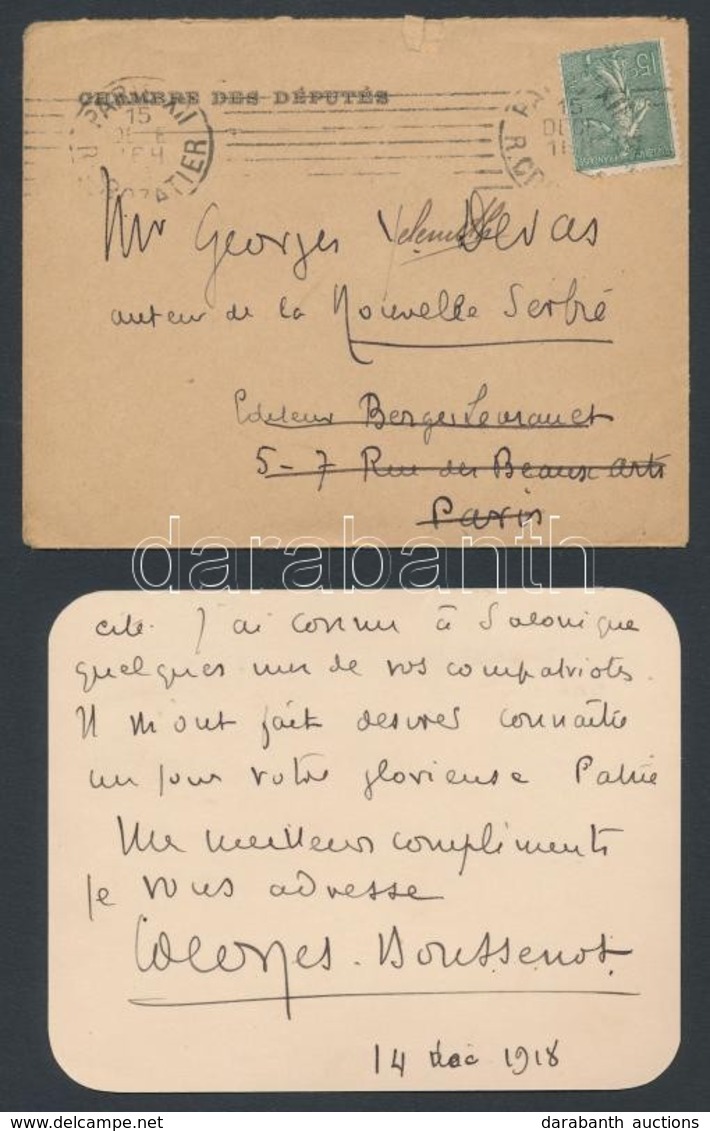 CHAMBRE DES DÉPUTÉS
PARIS XII
15
DEC
R. CROZATIER
15
DEC
15
Mr Georges Devas
auteur de la Nouvelle Serbie
Editeur Berger Levrault
5-7 Rue des Beaux arts
Paris
darabanth
cité. J'ai connu à Salonique
quelques uns de vos compatriotes.
Il m'ont fait desirer connaître
un jour votre glorieuse Patrie
Mes meilleurs compliments
je vous adresse
Georges. Boussenot
14 dec 1918
delcampe.net
darabanth auctions